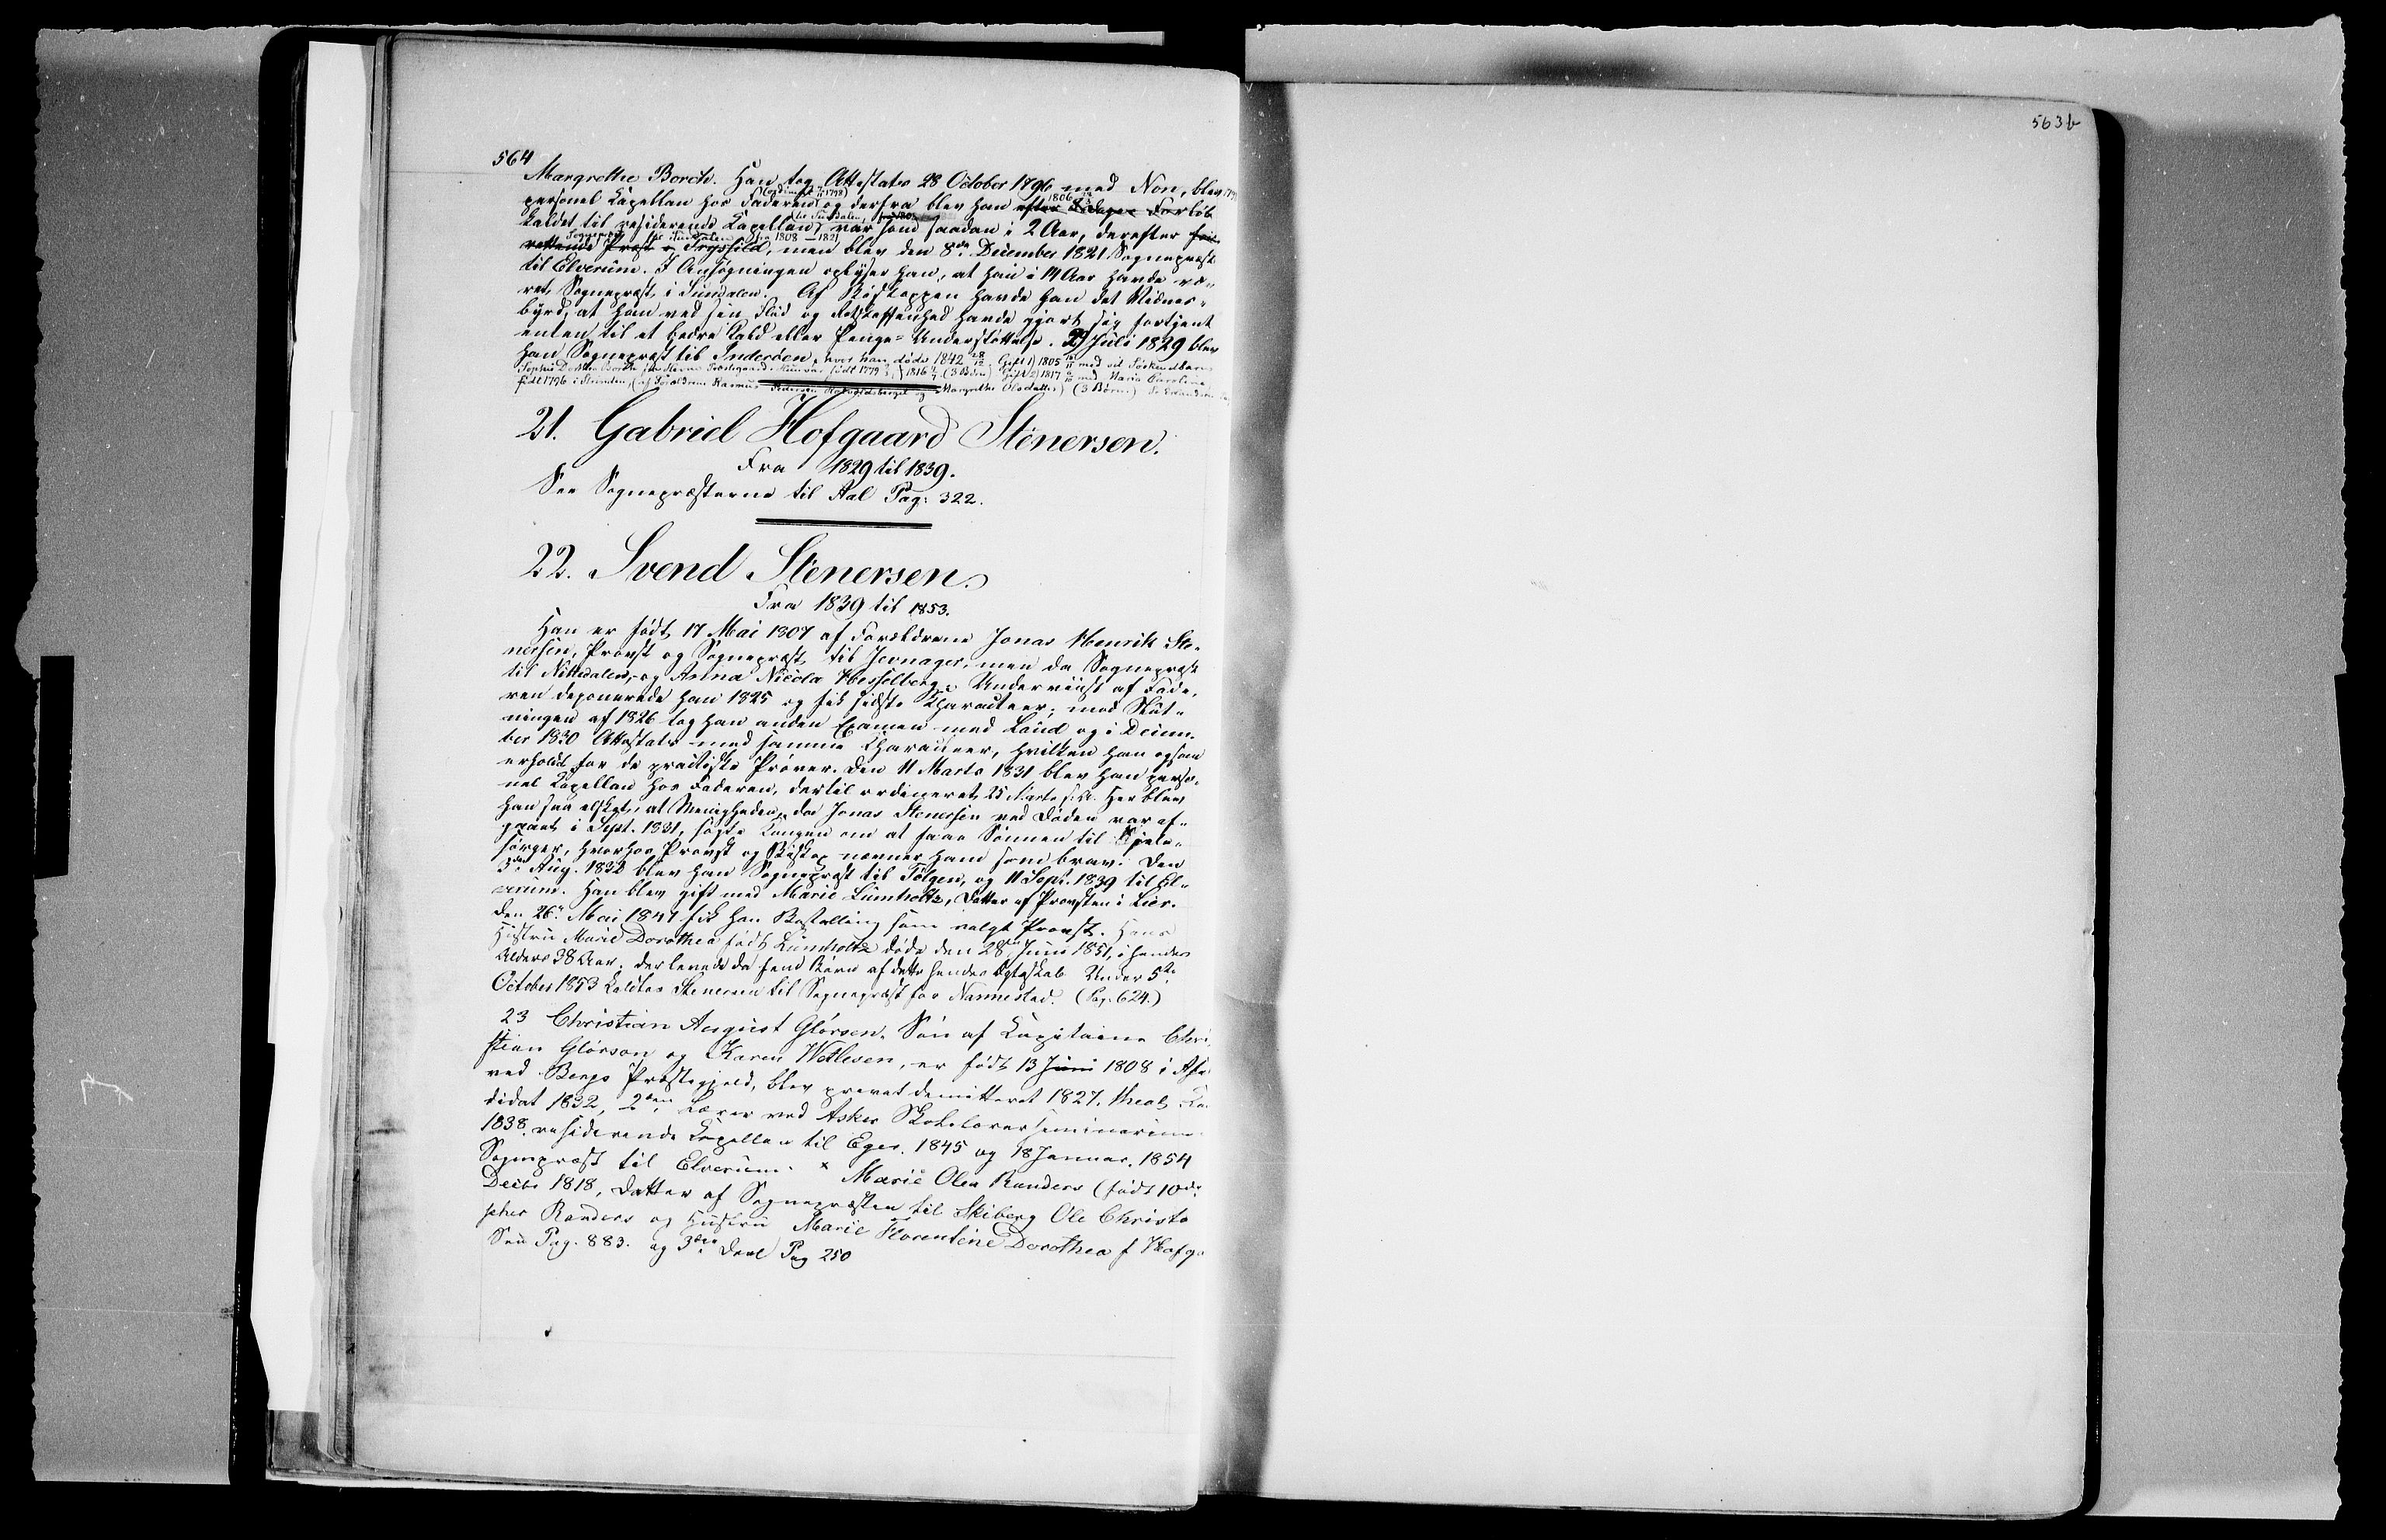 563b
564
Margrethe Borch. Han tog Attestats 28 October 1796 med Non, blev
personel Kapellan hos Faderen og derfra blev han efter Forløb
kaldet til residerende Kapellan, var som saadan i 2 Aar, derefter
Præst Trysild, men blev den 8de December 1821 Sognepræst
til Elverum. I Ansøgningen oplyser han, at han i 14 Aar havde væ-
ret Sognepræst i Sundalen. Af Biskoppen havde han det Vidnes-
byrd, at han ved sin Flid og Retskaffenhed havde gjort sig fortjent
enten til et bedre Kald eller Penge-Understøttelse. Juli 1829 blev
han Sognepræst til Inderöen, hvor han døde 1842 28/12 Gift 1) 1805 med sit Søskendebarn
født 1779 1816 (3 Børn) Gift 2) 1817 med Maria Caroline
født 1796 i Rasmus Margrethe Olsdatter) (3 Børn)
21. Gabriel Hofgaard Stenersen.
Fra 1829 til 1839.
See Sognepræsterne til Aal Pag: 322.
22. Svend Stenersen.
Fra 1839 til 1853.
Han er født 17 Mai 1807 af Forældrene Jonas Henrik Ste-
nersen, Provst og Sognepræst til Jevnager, men da Sognepræst
til Nittedalen, og Anna Nicola Hesselberg. Underviist af Fade-
ren deponerede han 1825 og fik sidste Character; med Slut-
ningen af 1826 tog han anden Examen med Laud og i Decem-
ber 1830 Attestats med samme Character, hvilken han ogsaa
erholdt for de practiske Prøver. Den 11 Marts 1831 blev han perso-
nel Kapellan hos Faderen, dertil ordineret 25 Marts s. A. Her blev
han saa elsket, at Menigheden, da Jonas Stenersen ved Døden var af-
gaaet i Sept. 1831, søgte Kongen om at faae Sønnen til Sjæle-
sørger, hvorhos Provst og Biskop nævner ham som brav. Den
3die Aug. 1832 blev han Sognepræst til Tolgen, og 11 Sept. 1839 til El-
verum. Han blev gift med Marie Lumholtz, Datter af Provsten i Lier.
Den 26de Mai 1847 fik han Bestalling som valgt Provst. Hans
Hustru Marie Dorothea født Lumholtz døde den 28de Juni 1851, i hendes
Alders 38 Aar. Der levede da fem Børn af dette hendes Ægteskab. Under 5te
October 1853 kaldtes Stenersen til Sognepræst for Nannestad. (Pag. 624.)
23 Christian August Glörsen. Søn af Kapitaine Chri-
stian Glörson og Karen Wetlesen, er født 13 Juni 1808 i
ved Bergs Præstegjeld, blev privat demitteret 1827. theol. Ka
didat 1832, 2den Lærer ved Asker Skolelærerseminarium
1838. residerende Kapellan til Eger. 1845 og 18 Januar. 1854
Sognepræst til Elverum. x Marie Olea Randers (født 10de
Decbr 1818, Datter af Sognepræsten til Skiberg Ole Christo
pher Randers og Hustru Marie Florentine Dorothea f Hofga
See Pag. 883. og 3die Deel Pag 250